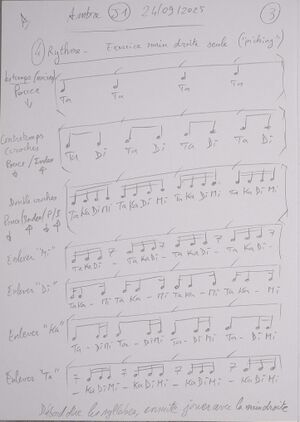 Ambra S1 24/09/2025 3
4) Rythme - Exercice main droite seule ("picking")
Pouce
Ta Ta Ta Ta
Contretemps
Croches
Pouce / Index
Ta Di Ta Di Ta Di Ta Di
Double croches
Pouce/Index/P/I
Ta Ka Di Mi Ta Ka Di Mi Ta Ka Di Mi Ta Ka Di Mi
Enlever "Mi"
Ta Ka Di - Ta Ka Di - Ta Ka Di - Ta Ka Di -
Enlever "Di"
Ta Ka - Mi Ta Ka - Mi Ta Ka - Mi Ta Ka - Mi
Enlever "Ka"
Ta - Di Mi Ta - Di Mi Ta - Di Mi Ta - Di Mi
Enlever "Ta"
- Ka Di Mi - Ka Di Mi - Ka Di Mi - Ka Di Mi
les syllabes, ensuite jouer avec la main droite